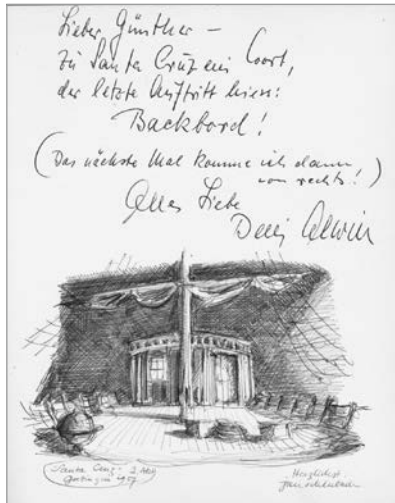 Lieber Günther –
zu Santa Cruz ein Wort,
der letzte Auftritt hiess:
Backbord!
(Das nächste Mal komme ich dann
von rechts!)
Alles Liebe
Dein
Santa Cruz 2. Akt
Göttingen 1957
Herzlichst